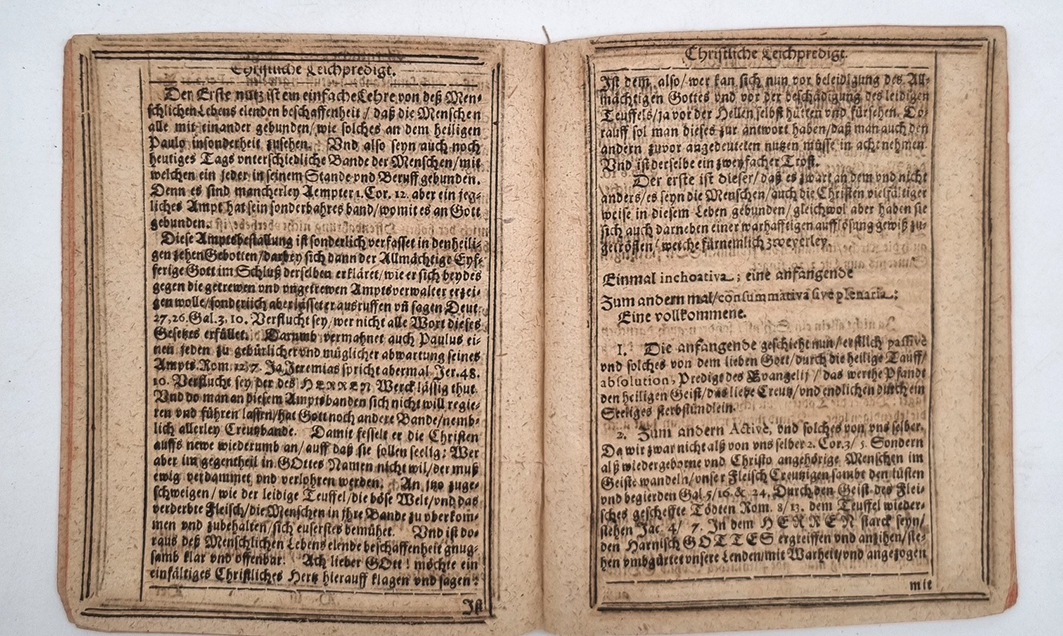 Christliche Leichpredigt.
Der Erste nutz ist ein einfache Lehre von deß Men-
schlichen Lebens elenden beschaffenheit / daß die Menschen
alle mit einander gebunden / wie solches an dem heiligen
Paulo insonderheit zusehen. Vnd also seyn auch noch
heutiges Tags vnterschiedliche Bande der Menschen / mit
welchen ein jeder in seinem Stande vnd Beruff gebunden.
Denn es sind mancherley Aempter 1. Cor. 12. aber ein jeg-
liches Ampt hat sein sonderbahres band / womit es an Gott
gebunden.
Diese Amptsbestallung ist sonderlich verfasset in den heili-
gen zehen Gebotten / darbey sich dann der Allmächtige Eyf-
ferige Gott im Schluß derselben erkläret / wie er sich beydes
gegen die getrewen vnd vngetrewen Amptsverwalter erzei-
gen wolle / sonderlich aber lässet er ausruffen vñ sagen Deut.
27, 26. Gal. 3. 10. Verflucht sey / wer nicht alle Wort dieses
Gesetzes erfüllet. Darumb vermahnet auch Paulus ei-
nen jeden zu gebürlicher vnd müglicher abwartung seines
Ampts Rom. 12/7. Ja Jeremias spricht abermal Jer. 48.
10. Verflucht sey / der des HERREN Werck lässig thut.
Vnd do man an diesem Amptsbanden sich nicht will regie-
ren vnd führen lassen / hat Gott noch andere Bande / nemb-
lich allerley Creutzbande. Damit fesselt er die Christen
auffs newe wiederumb an / auff daß sie sollen seelig: Wer
aber im gegentheil in GOttes Namen nicht wil / der muß
ewig verdammet vnd verlohren werden. An itzo zuge-
schweigen / wie der leidige Teuffel / die böse Welt / vnd das
verderbte Fleisch / die Menschen in ihre Bande zu vberkom-
men vnd zubehalten / sich euserstes bemühet. Vnd ist do-
raus deß Menschlichen Lebens elende beschaffenheit gnug-
samb klar vnd offenbar. Ach lieber GOtt! möchte ein
einfältiges Christliches Hertz hierauff klagen vnd sagen:
Ist
Christliche Leichpredigt.
Ist dem also / wer kan sich nun vor beleidigung des All-
mächtigen Gottes vnd vor der beschädigung des leidigen
Teuffels / ja vor der Hellen selbst hütten vnd fürsehen. Do-
rauff sol man dieses zur antwort haben / daß man auch den
andern zuvor angedeuteten nutzen müsse in acht nehmen.
Vnd ist derselbe ein zweyfacher Trost.
Der erste ist dieser / daß es zwar an dem vnd nicht
anders / es seyn die Menschen / auch die Christen vielfältiger
weise in diesem Leben gebunden / gleichwol aber haben sie
sich auch darneben einer warhafftigen aufflösung gewiß zu-
getrösten / welche fürnemlich zweyerley.
Einmal inchoativa; eine anfangende
Zum andern mal / consummativa sive plenaria;
Eine vollkommene.
1. Die anfangende geschieht nun / erstlich passivè
vnd solches von dem lieben Gott / durch die heilige Tauff /
absolution, Predigt des Evangelij / das werthe Pfandt
den heiligen Geist / das liebe Creutz / vnd endlichen durch ein
Seeliges sterbstündlein.
2. Zum andern Activè, vnd solches von vns selber.
Da wir zwar nicht alß von vns selber 2. Cor. 3/ 5. Sondern
alß wiedergeborne vnd Christo angehörige Menschen im
Geiste wandeln / vnser Fleisch Creutzigen sambt den lüsten
vnd begierden Gal. 5/ 16. & 24. Durch den Geist des Flei-
sches gescheffte Tödten Rom. 8/ 13. dem Teuffel wieder-
stehen Jac. 4/ 7. In dem HERREN starck seyn /
den Harnisch GOTTES ergreiffen vnd anzihen / ste-
hen vmbgürtet vnsere Lenden mit Warheit / vnd angezogen
mit